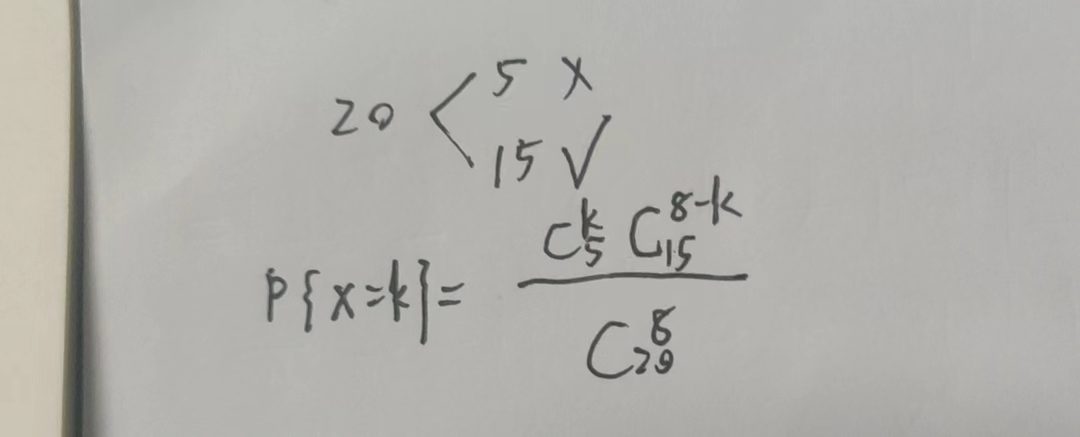 20 < 5 ×
15 √
P{x=k}= \frac{C_5^k C_{15}^{8-k}}{C_{20}^8}